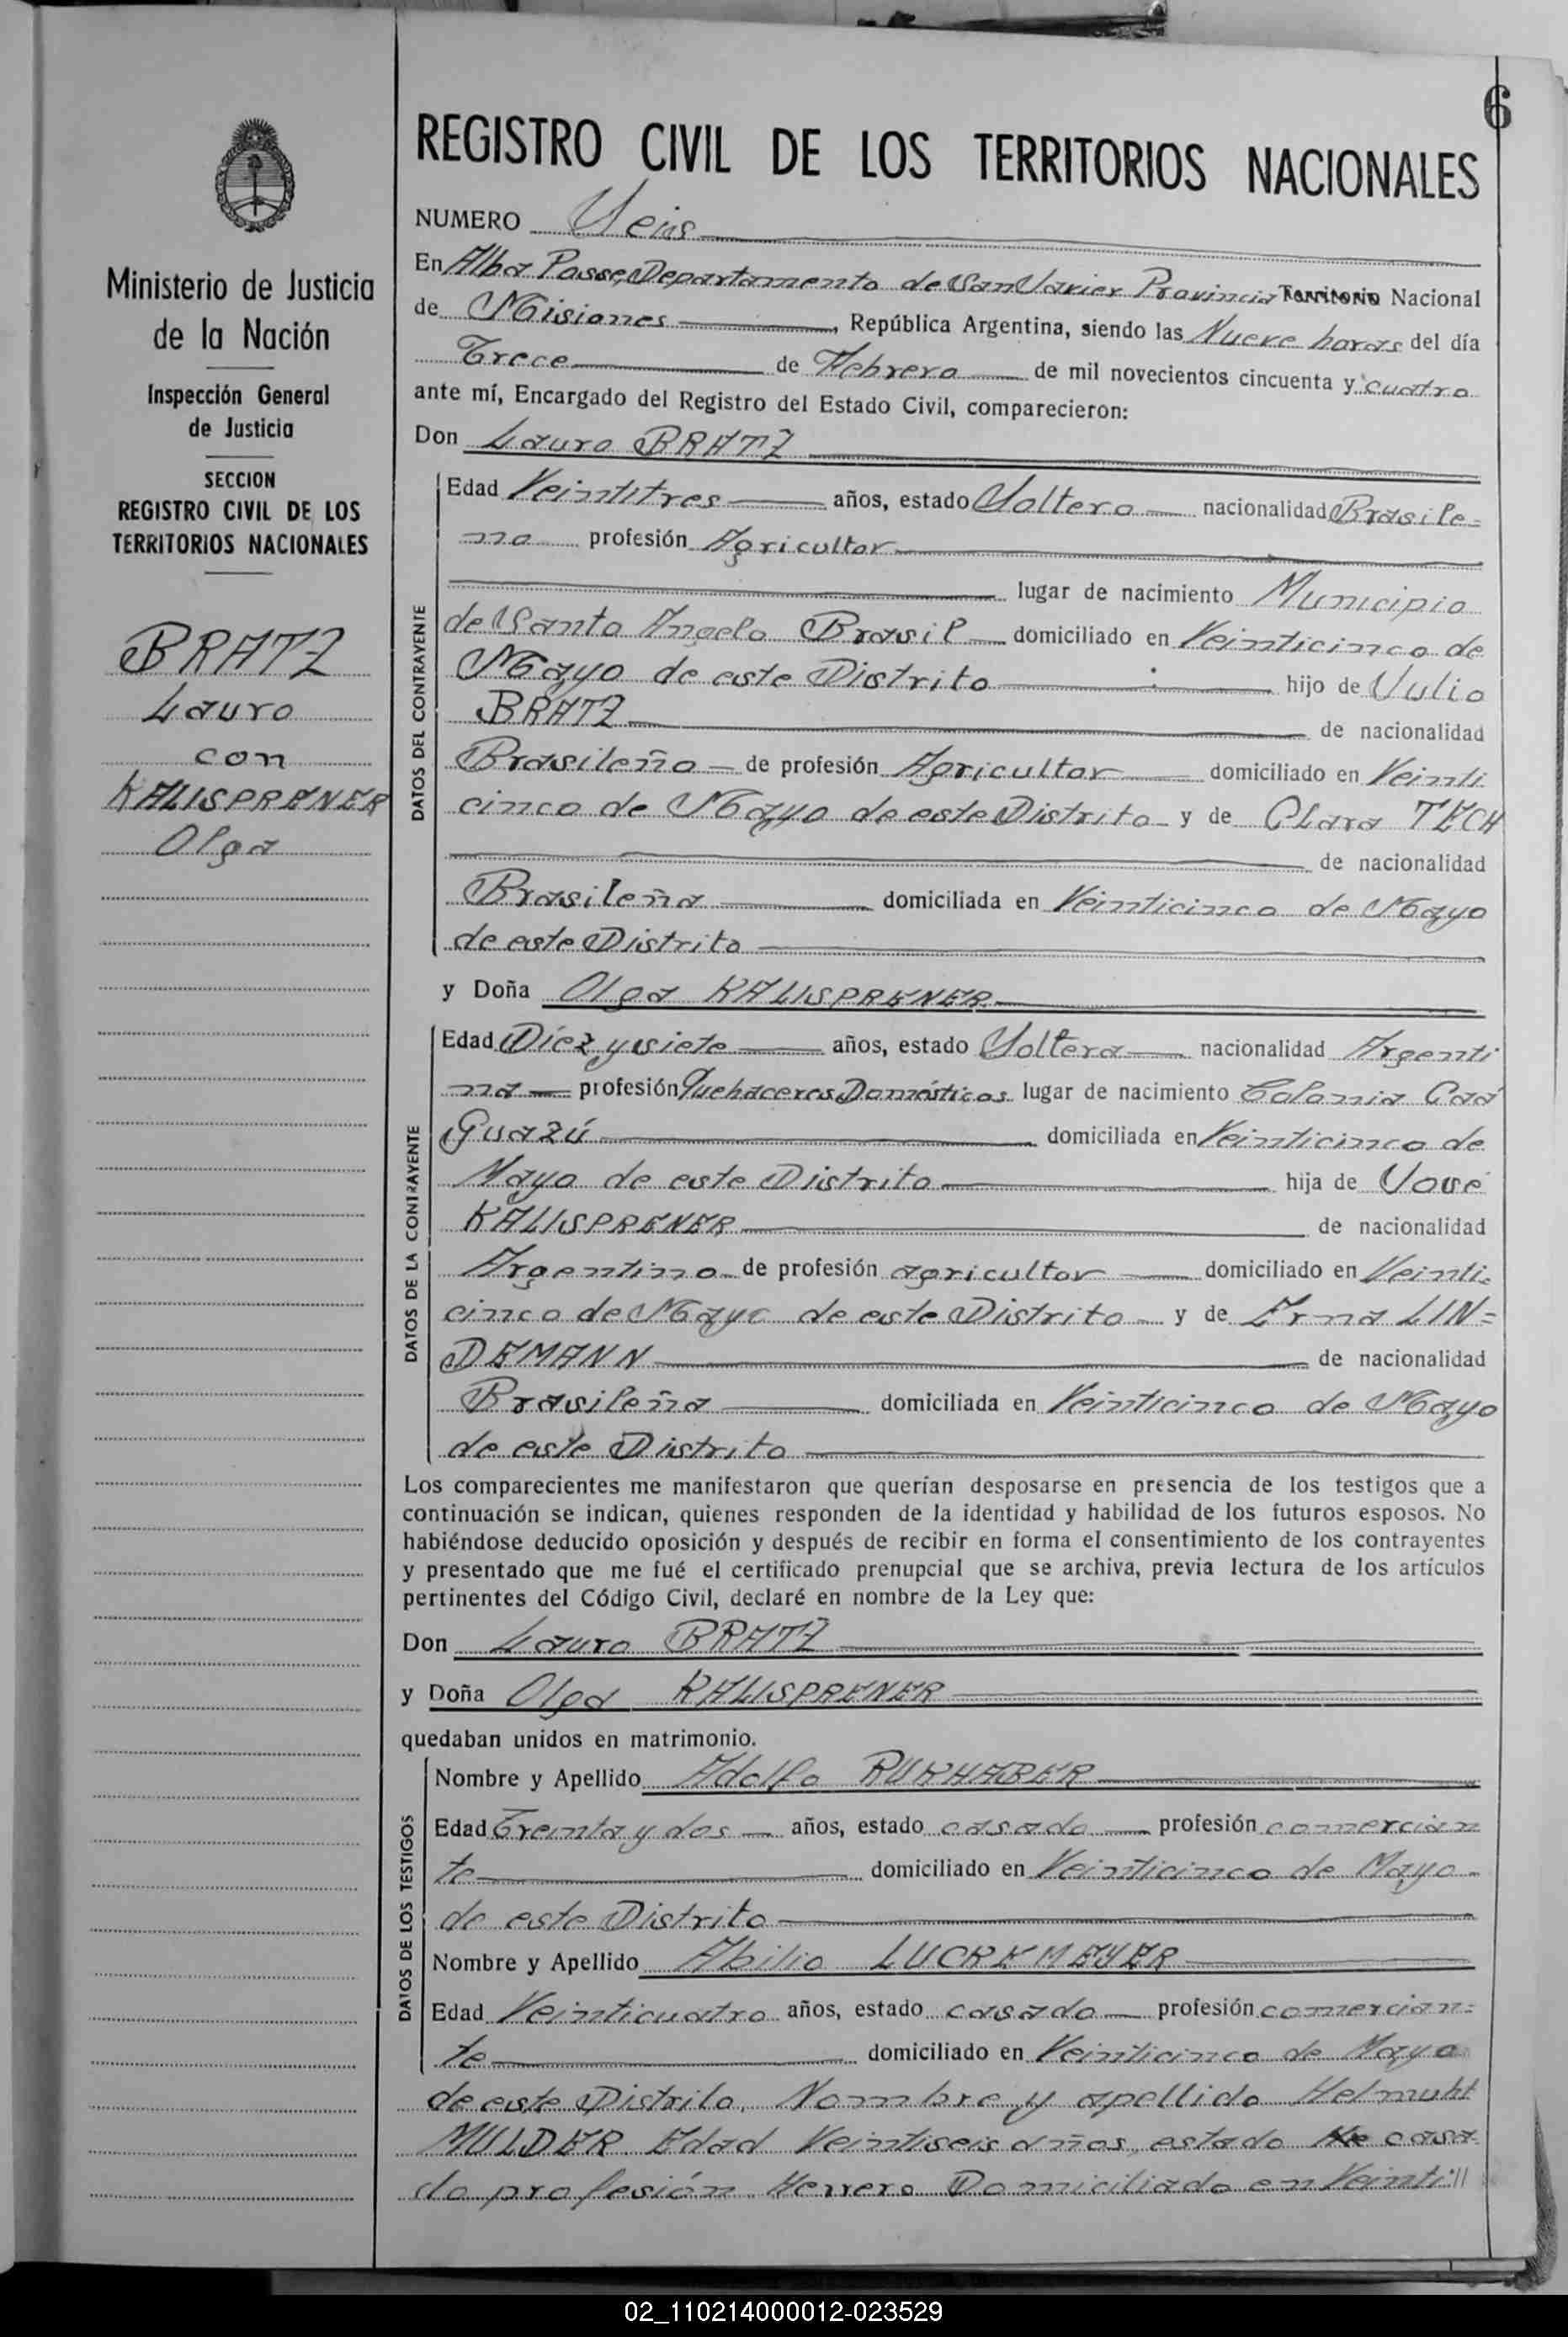 6
REGISTRO CIVIL DE LOS TERRITORIOS NACIONALES
Ministerio de Justicia
de la Nación
Inspección General
de Justicia
SECCION
REGISTRO CIVIL DE LOS
TERRITORIOS NACIONALES
BRATZ
Lauro
con
KALISPRENER
Olga
NUMERO Seis
En Alba Posse, Departamento de San Javier Provincia Territorio Nacional
de Misiones, República Argentina, siendo las Nueve horas del día
Trece de Febrero de mil novecientos cincuenta y cuatro
ante mí, Encargado del Registro del Estado Civil, comparecieron:
Don Lauro BRATZ
DATOS DEL CONTRAYENTE
Edad Veintitres años, estado Soltero nacionalidad Brasile=
no profesión Agricultor
lugar de nacimiento Municipio
de Santo Angelo Brasil domiciliado en Veinticinco de
Mayo de este Distrito hijo de Julio
BRATZ de nacionalidad
Brasileño de profesión Agricultor domiciliado en Veinti
cinco de Mayo de este Distrito y de Clara TECH
de nacionalidad
Brasileña domiciliada en Veinticinco de Mayo
de este Distrito
y Doña Olga KALISPRENER
DATOS DE LA CONTRAYENTE
Edad Diez y siete años, estado Soltera nacionalidad Argenti
na profesión Quehaceres Domésticos lugar de nacimiento Colonia Caá
Guazú domiciliada en Veinticinco de
Mayo de este Distrito hija de José
KALISPRENER de nacionalidad
Argentino de profesión agricultor domiciliado en Veinti
cinco de Mayo de este Distrito y de Erna LIN=
DEMANN de nacionalidad
Brasileña domiciliada en Veinticinco de Mayo
de este Distrito
Los comparecientes me manifestaron que querían desposarse en presencia de los testigos que a
continuación se indican, quienes responden de la identidad y habilidad de los futuros esposos. No
habiéndose deducido oposición y después de recibir en forma el consentimiento de los contrayentes
y presentado que me fué el certificado prenupcial que se archiva, previa lectura de los artículos
pertinentes del Código Civil, declaré en nombre de la Ley que:
Don Lauro BRATZ
y Doña Olga KALISPRENER
quedaban unidos en matrimonio.
DATOS DE LOS TESTIGOS
Nombre y Apellido Adolfo RUKHABER
Edad Treinta y dos años, estado casado profesión comercian
te domiciliado en Veinticinco de Mayo
de este Distrito
Nombre y Apellido Abilio LUCKEMEYER
Edad Veinticuatro años, estado casado profesión comercian=
te domiciliado en Veinticinco de Mayo
de este Distrito. Nombre y apellido Helmuht
MULDER Edad Veintiseis años, estado casa
do profesión Herrero Domiciliado en Veinti
02_110214000012-023529